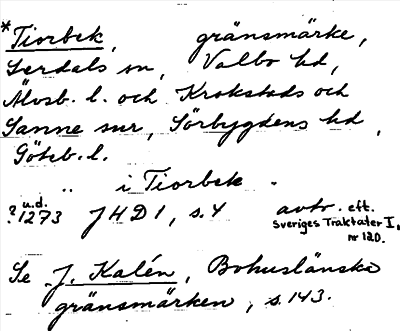 *Tiorbek, gränsmärke,
Lerdals sn, Valbo hd,
Älvsb. l. och Krokstads och
Sanne snr, Sörbygdens hd,
Göteb. l.
" i Tiorbek -
? u.d. 1273 JHD 1, s. 4 avtr. eft.
Sveriges Traktater I,
nr 120.
Se J. Kalén, Bohuslänska
gränsmärken, s. 143.